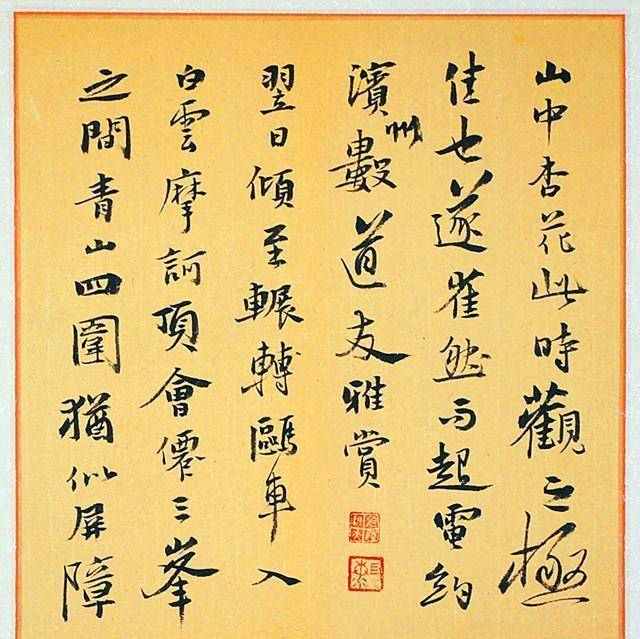 山中杏花此時觀之極
佳也遂雀然而起電約
濱州數道友雅賞
翌日傾至輾轉驅車入
白雲摩訶頂會僊三峯
之間青山四圍猶似屏障